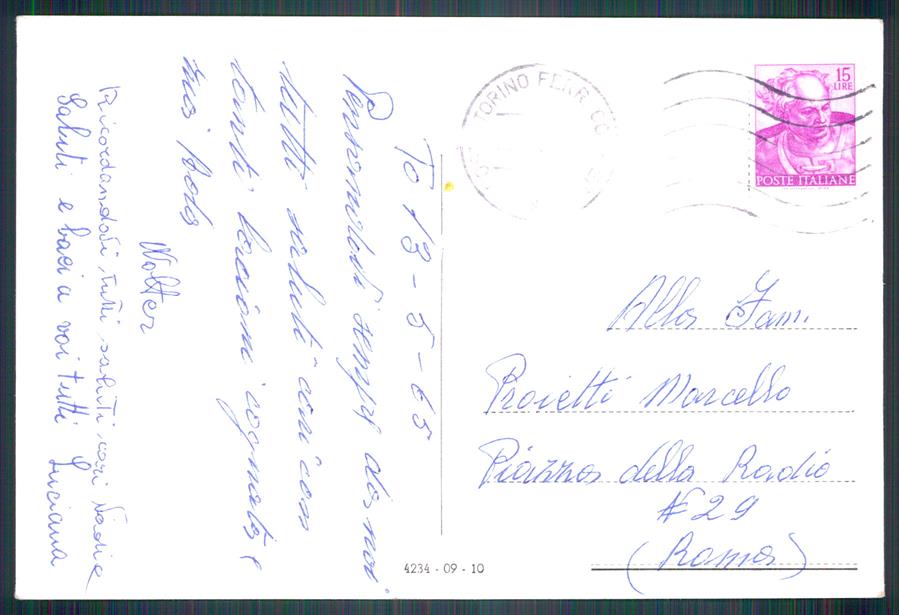 To 13-5-65
Pensandovi sempre da noi
tutti saluti cari con
tanti bacioni cognata e
zio
Walter
Ricordandovi, tutti saluti cari Nadia e
Saluti e baci a voi tutti Luciana
TORINO FERR. CO
15
LIRE
POSTE ITALIANE
Alla Fam.
Proietti Marcello
Piazza della Radio
N 29
(Roma)
4234 - 09 - 10